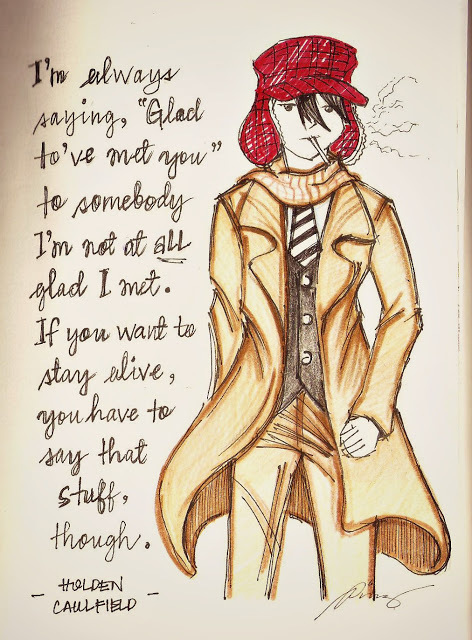 I'm always
saying, "Glad
to've met you"
to somebody
I'm not at all
glad I met.
If you want to
stay alive,
you have to
say that
stuff,
though.
- HOLDEN
CAULFIELD -